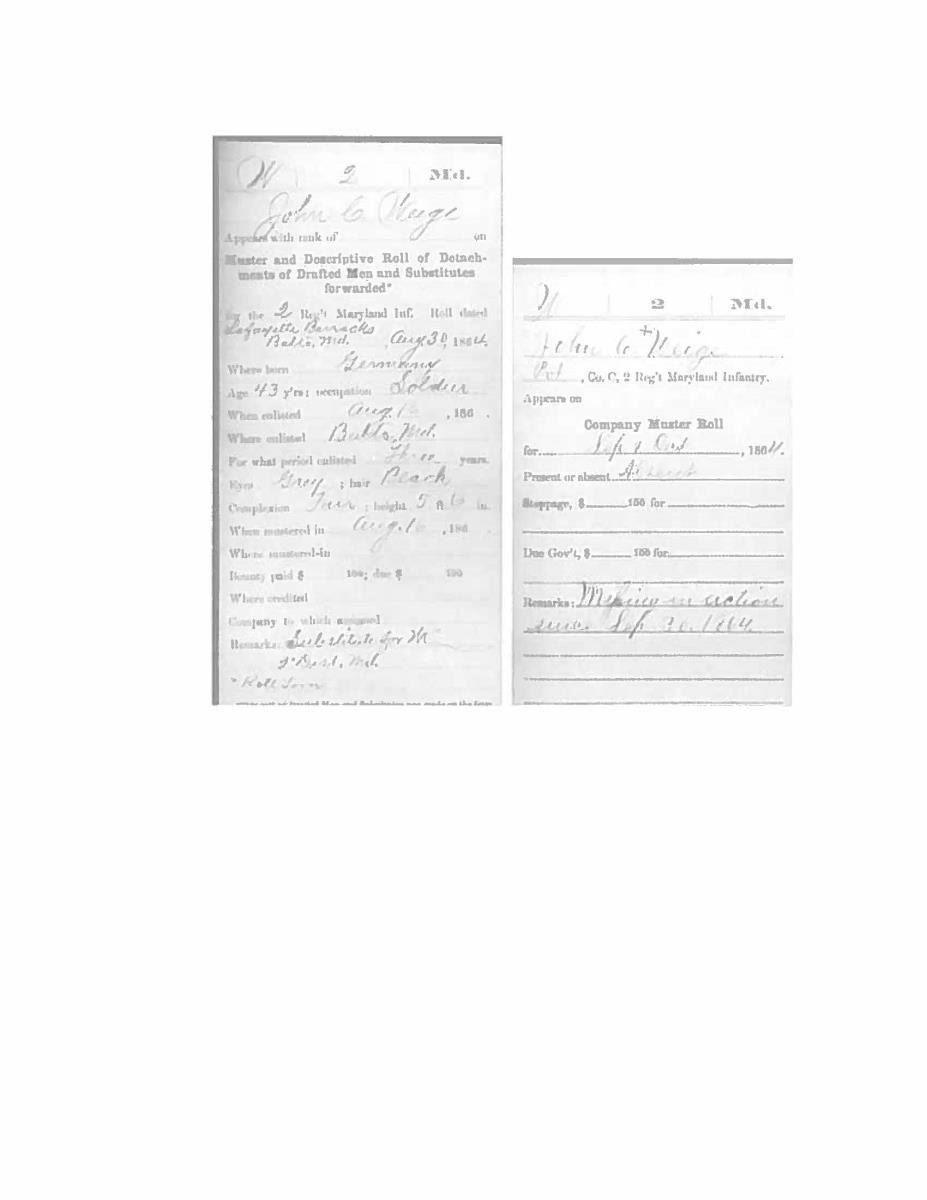 W | 2 | Md.
John C Weige
Appears with rank of on
Muster and Descriptive Roll of Detach-
ments of Drafted Men and Substitutes
forwarded*
for the 2 Reg't Maryland Inf. Roll dated
Lafayette Barracks
Balto, Md. , Aug. 30, 1864.
Where born Germany
Age 43 y'rs; occupation Soldier
When enlisted Aug. 16 , 186 .
Where enlisted Balto, Md.
For what period enlisted Three years.
Eyes Grey ; hair Black
Complexion Fair ; height 5 ft 6 in.
When mustered in Aug. 16 , 186 .
Where mustered-in
Bounty paid $ 100; due $ 100
Where credited
Company to which assigned
Remarks: Substitute for M
2" Dist. Md.
* Roll torn
W | 2 | Md.
John C + Weige
Pvt , Co. C, 2 Reg't Maryland Infantry.
Appears on
Company Muster Roll
for Sep & Oct , 1864.
Present or absent Absent
Stoppage, $ 100 for
Due Gov't, $ 100 for
Remarks: Missing in action
since Sep 30. 1864.